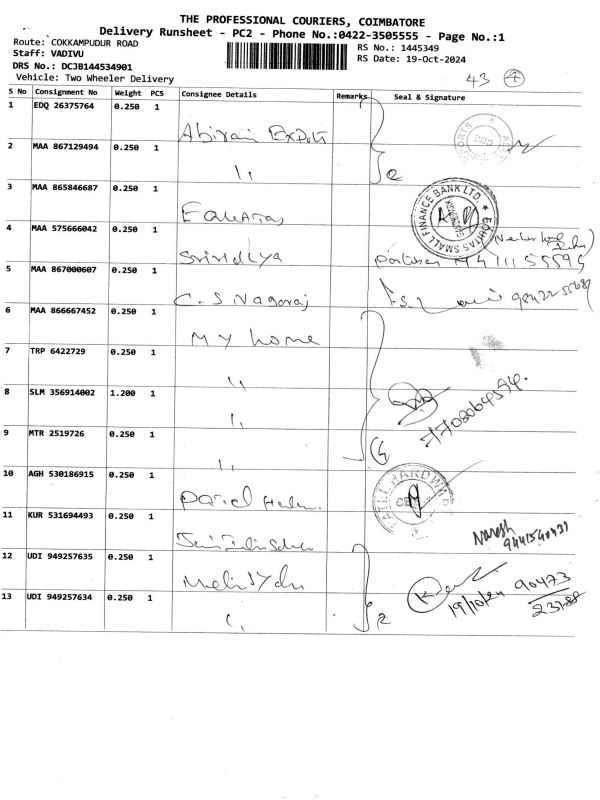 THE PROFESSIONAL COURIERS, COIMBATORE
Delivery Runsheet - PC2 - Phone No.:0422-3505555 - Page No.:1
Route: COKKAMPUDUR ROAD
RS No.: 1445349
Staff: VADIVU
RS Date: 19-Oct-2024
DRS No.: DCJB144534901
Vehicle: Two Wheeler Delivery
43 4
S No Consignment No Weight PCS Consignee Details Remarks Seal & Signature
1 EDQ 26375764 0.250 1 Abirami Exports
2 MAA 867129494 0.250 1 ,, 2
3 MAA 865846687 0.250 1 Equitas
EQUITAS SMALL FINANCE BANK LTD.
4 MAA 575666042 0.250 1 Srividhya
5 MAA 867000607 0.250 1 C.S Nagaraj
6 MAA 866667452 0.250 1 My home
7 TRP 6422729 0.250 1 ,,
8 SLM 356914002 1.200 1 ,,
9 MTR 2519726 0.250 1 ,,
10 AGH 530186915 0.250 1 HARDWARE
11 KUR 531694493 0.250 1 Naresh
12 UDI 949257635 0.250 1
19/10/24 90473
23188
13 UDI 949257634 0.250 1 ,, 2